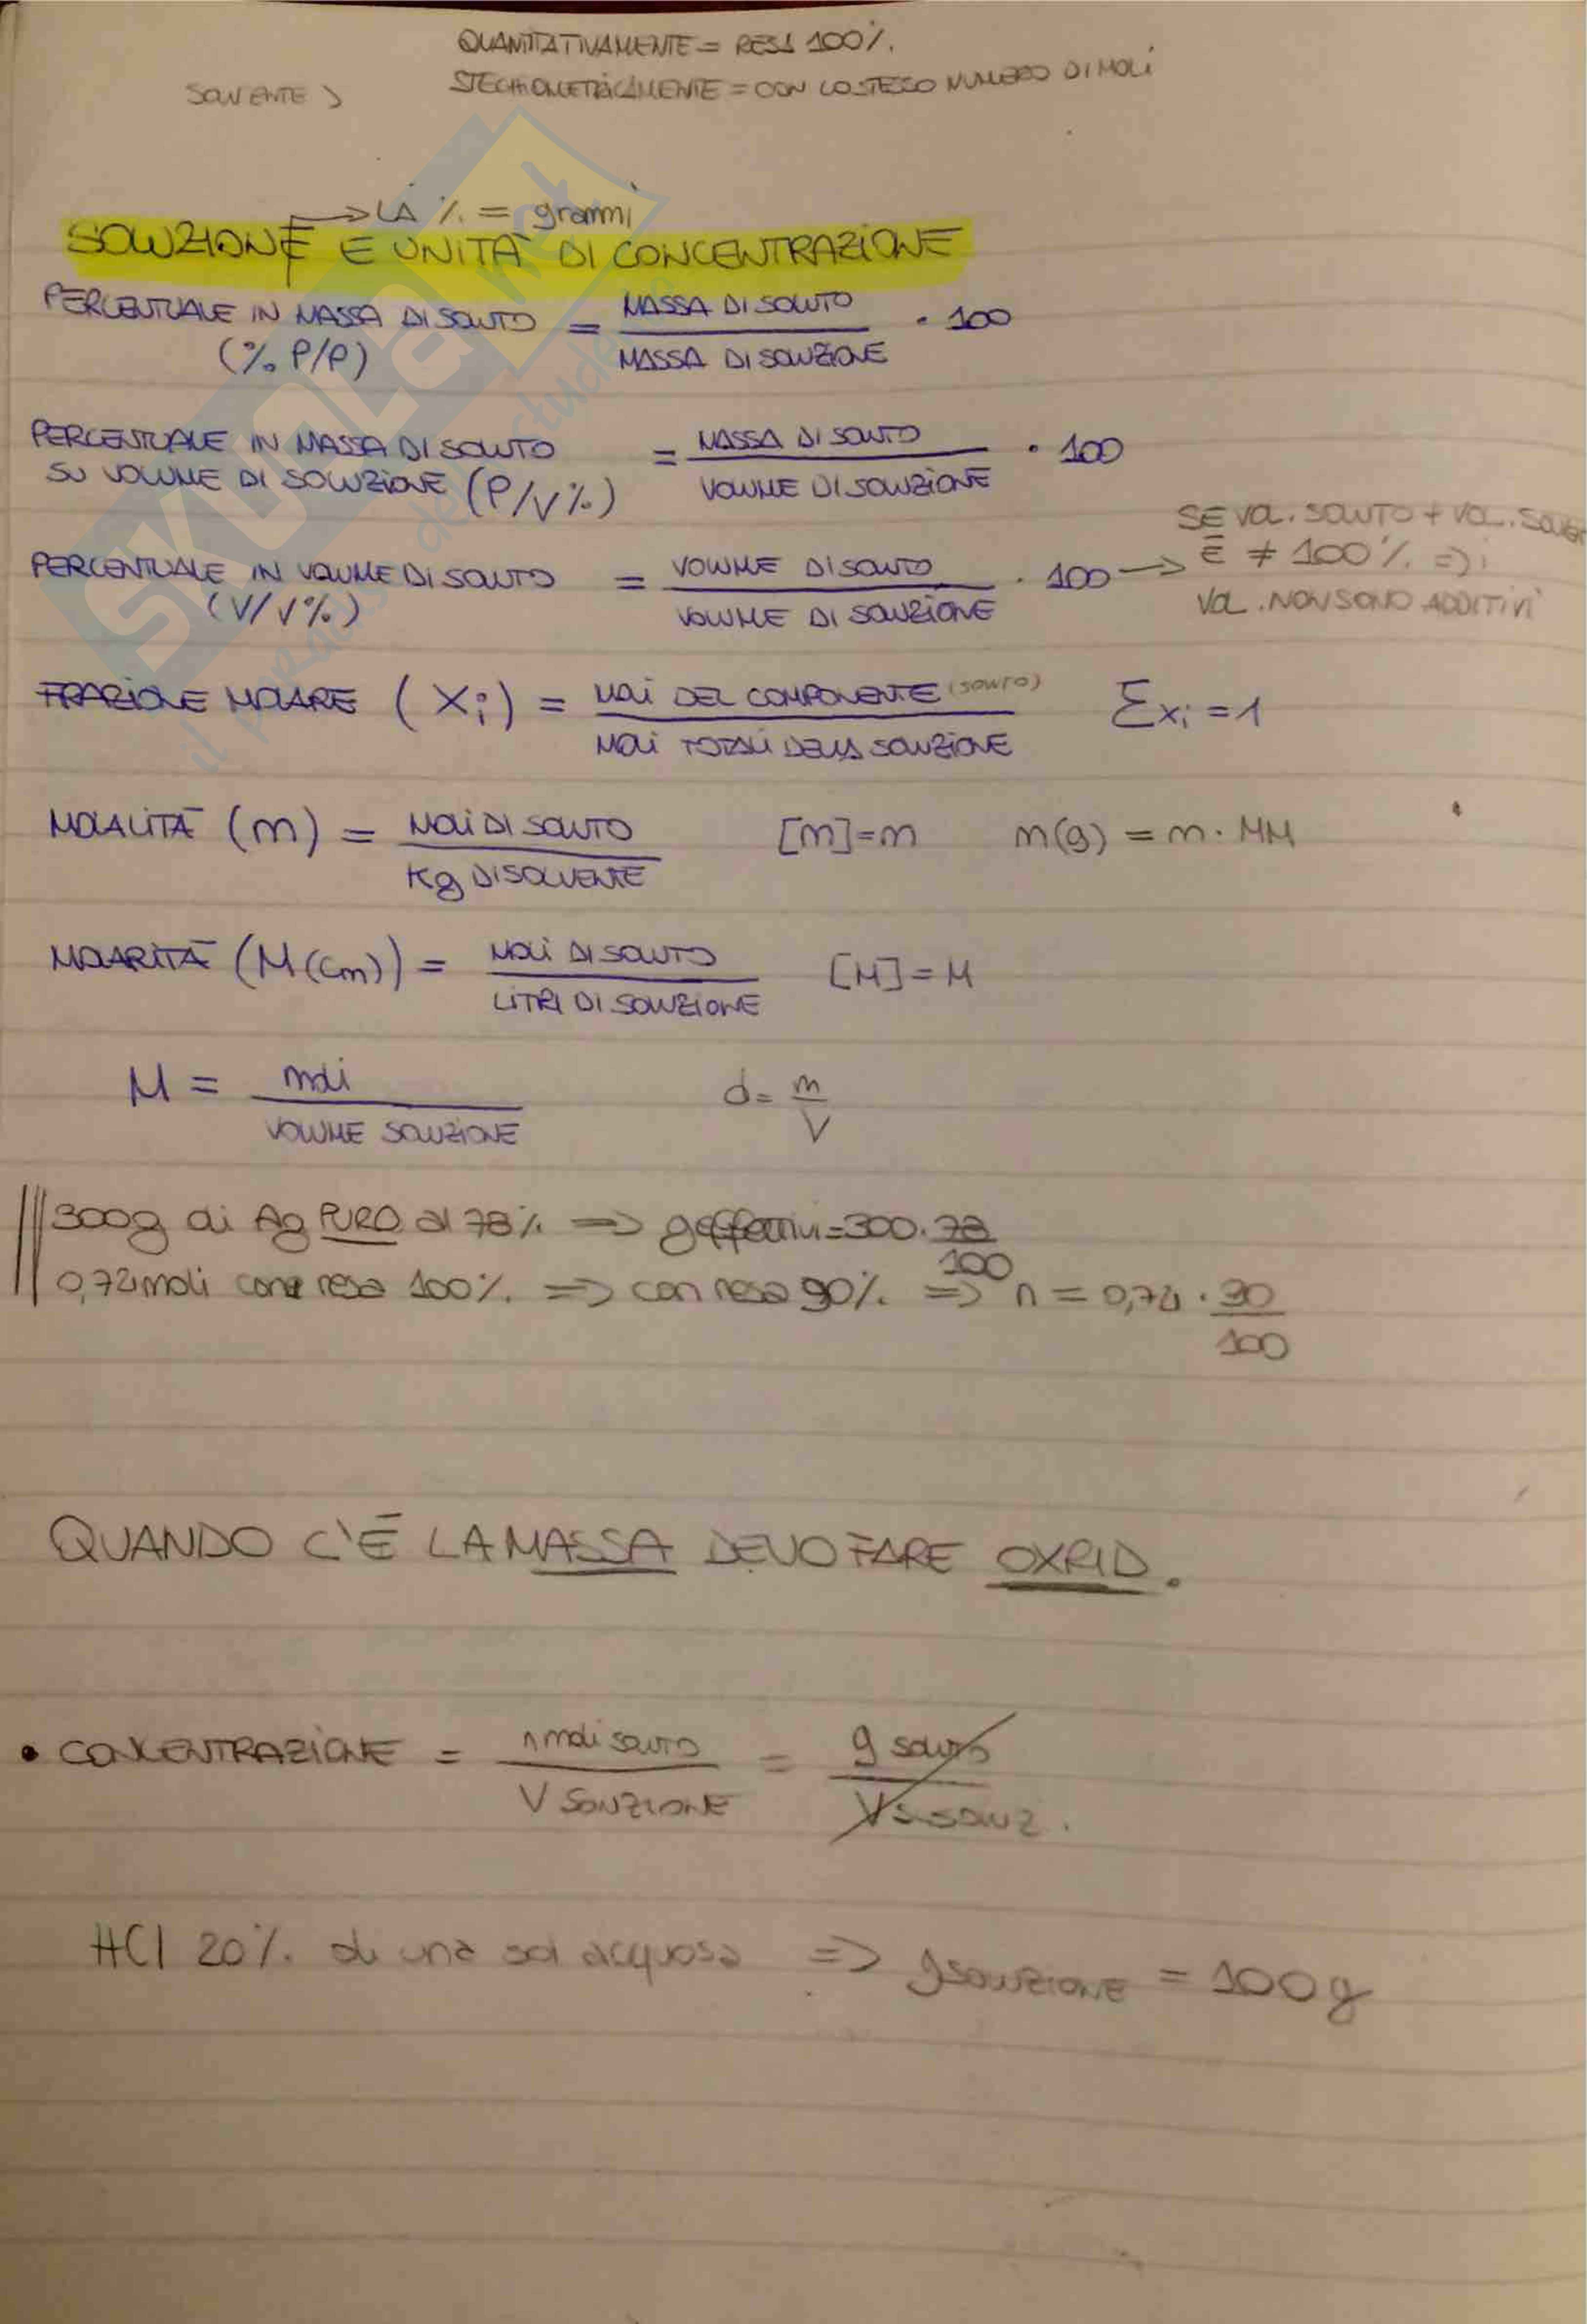 QUANTITATIVAMENTE = RESA 100%.
STECHIOMETRICAMENTE = CON LO STESSO NUMERO DI MOLI
SOLVENTE
→ LA % = grammi
SOLUZIONE E UNITÀ DI CONCENTRAZIONE
PERCENTUALE IN MASSA DI SOLUTO = MASSA DI SOLUTO / MASSA DI SOLUZIONE · 100
(% P/P)
PERCENTUALE IN MASSA DI SOLUTO
SU VOLUME DI SOLUZIONE (P/V%) = MASSA DI SOLUTO / VOLUME DI SOLUZIONE · 100
PERCENTUALE IN VOLUME DI SOLUTO = VOLUME DI SOLUTO / VOLUME DI SOLUZIONE · 100 →
(V/V%)
SE VOL. SOLUTO + VOL.
È ≠ 100% => i
VOL. NON SONO ADDITIVI
FRAZIONE MOLARE (Xi) = MOLI DEL COMPONENTE (SOLUTO) / MOLI TOTALI DELLA SOLUZIONE Σxi = 1
MOLALITÀ (m) = MOLI DI SOLUTO / Kg DI SOLVENTE [m] = m m(g) = n · MM
MOLARITÀ (M(Cm)) = MOLI DI SOLUTO / LITRI DI SOLUZIONE [M] = M
M = moli / VOLUME SOLUZIONE d = m / V
300g di Ag PURO al 78% => g effettivi = 300 · 78 / 100
0,74 moli con resa 100% => con resa 90% => n = 0,74 · 90 / 100
QUANDO C'È LA MASSA DEVO FARE OXRID.
• CONCENTRAZIONE = n moli soluto / V SOLUZIONE = g soluto
HCl 20% di una sol acquosa => g SOLUZIONE = 100 g
SKUOLA.net
il paradiso dello studente